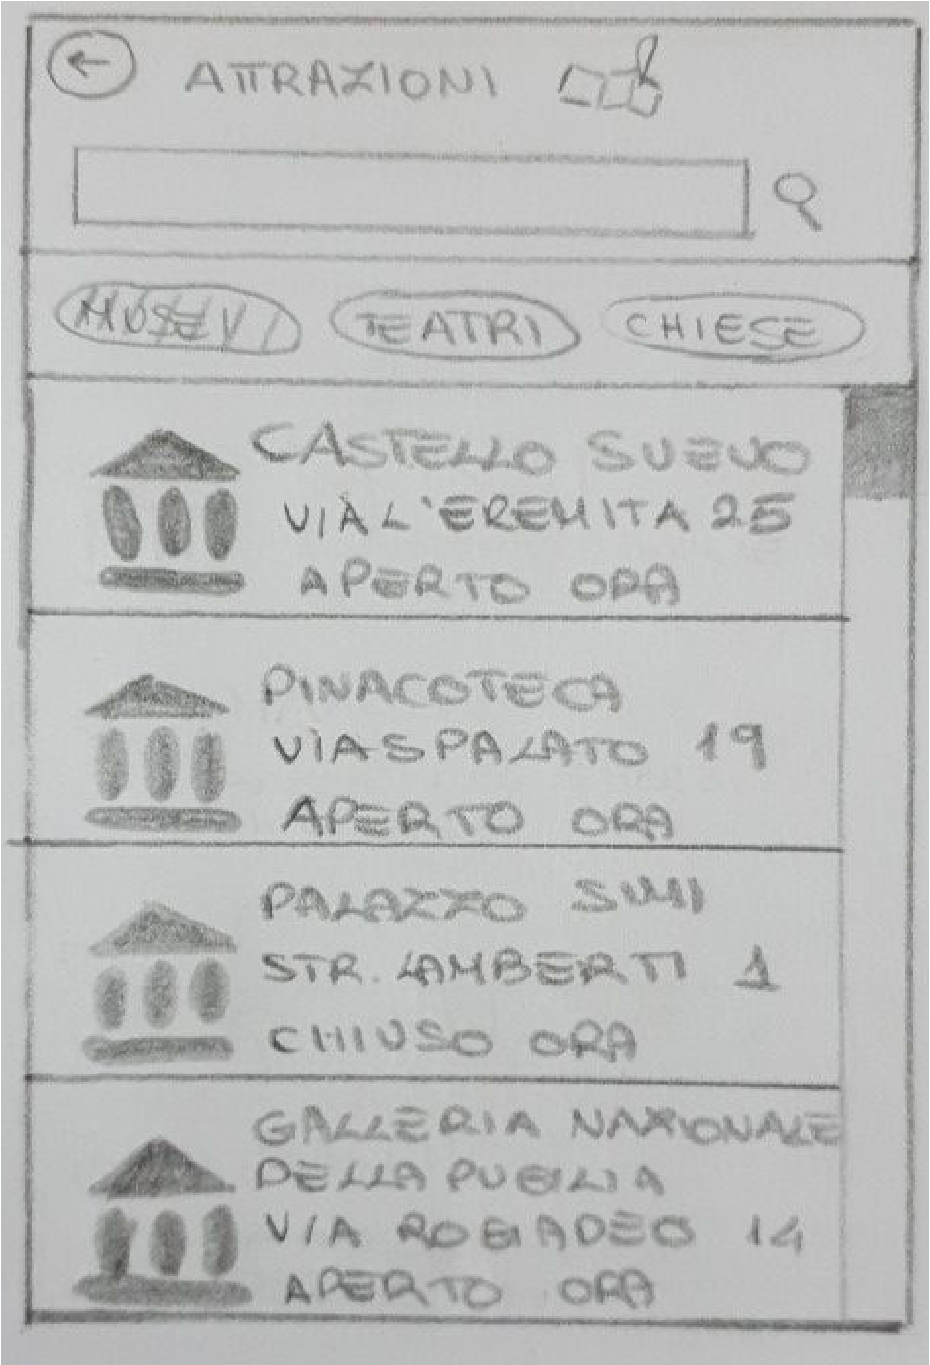 ATTRAZIONI
MUSEVI
TEATRI
CHIESE
CASTELLO SVEVO
VIA L'EREMITA 25
APERTO ORA
PINACOTECA
VIA SPALATO 19
APERTO ORA
PALAZZO SIMI
STR. LAMBERTI 1
CHIUSO ORA
GALLERIA NAZIONALE
DELLA PUGLIA
VIA ROGADEO 14
APERTO ORA